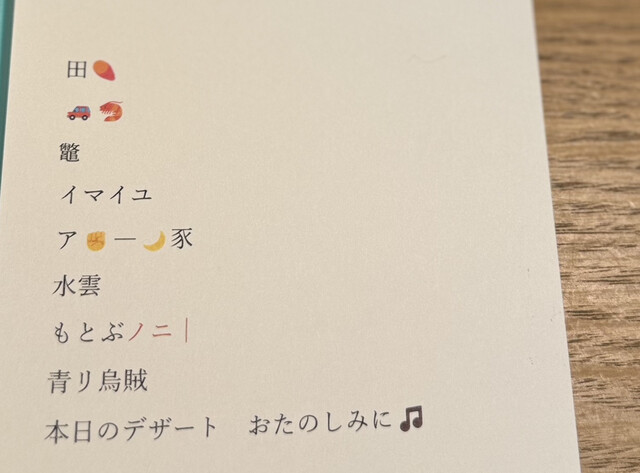 田🍠
🚙🦐
鼈
イマイユ
ア✊―🌙豕
水雲
もとぶノニ|
青リ烏賊
本日のデザート　おたのしみに🎵